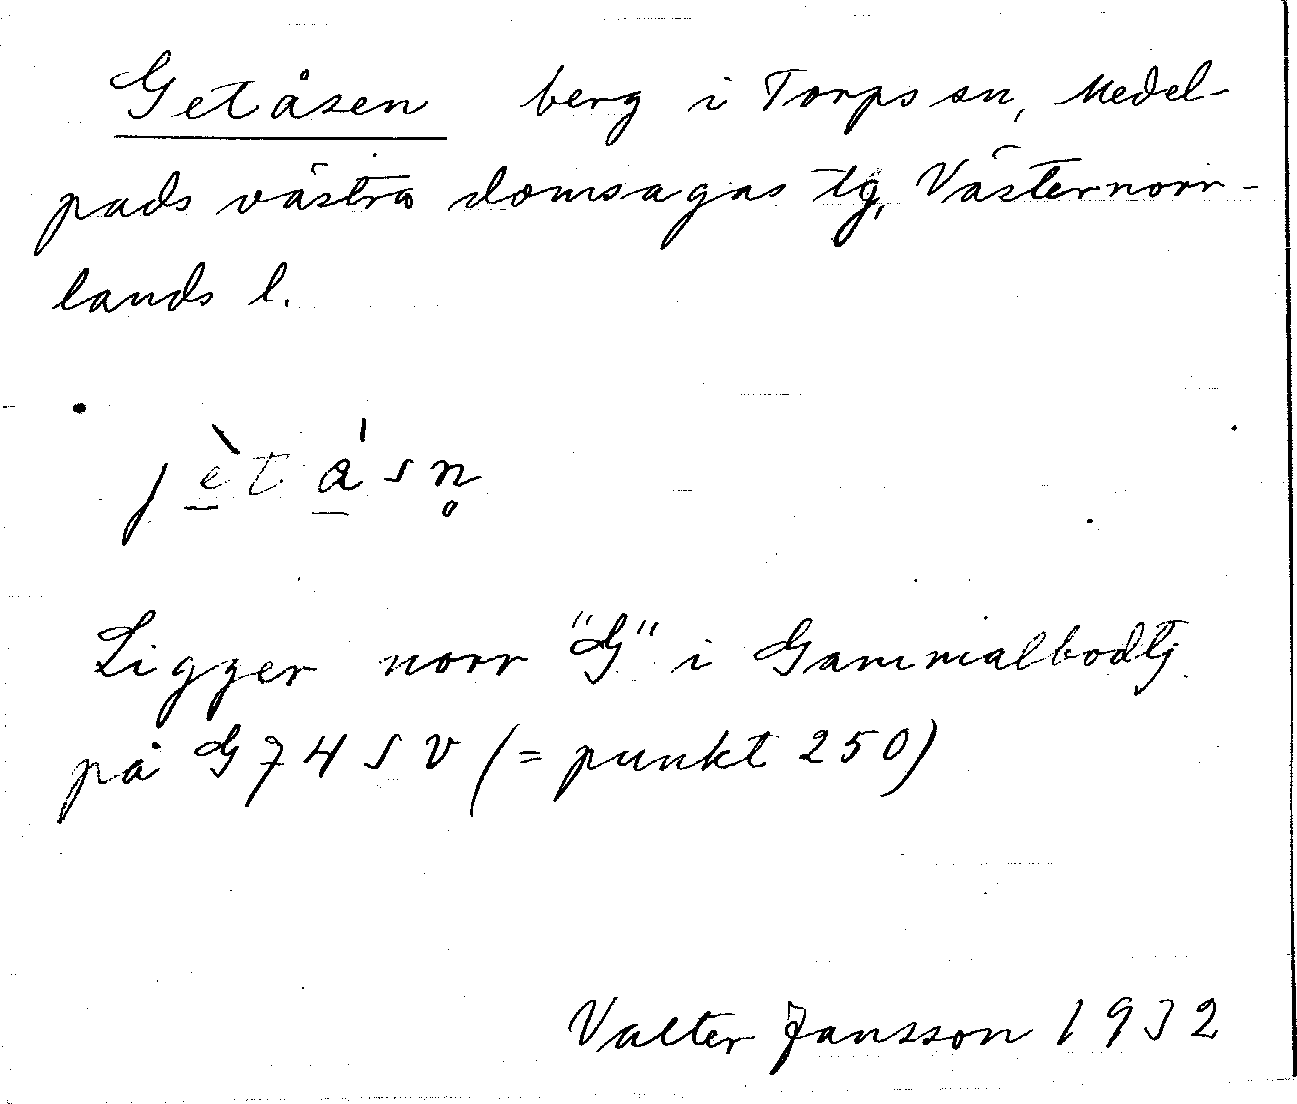 Getåsen berg i Torps sn, Medel-
pads västra domsagas tg, Västernorr-
lands l.
jèt åʹsn̥
Ligger norr "G" i Gammalbodtj
på G 74 SV (= punkt 250)
Valter Jansson 1932